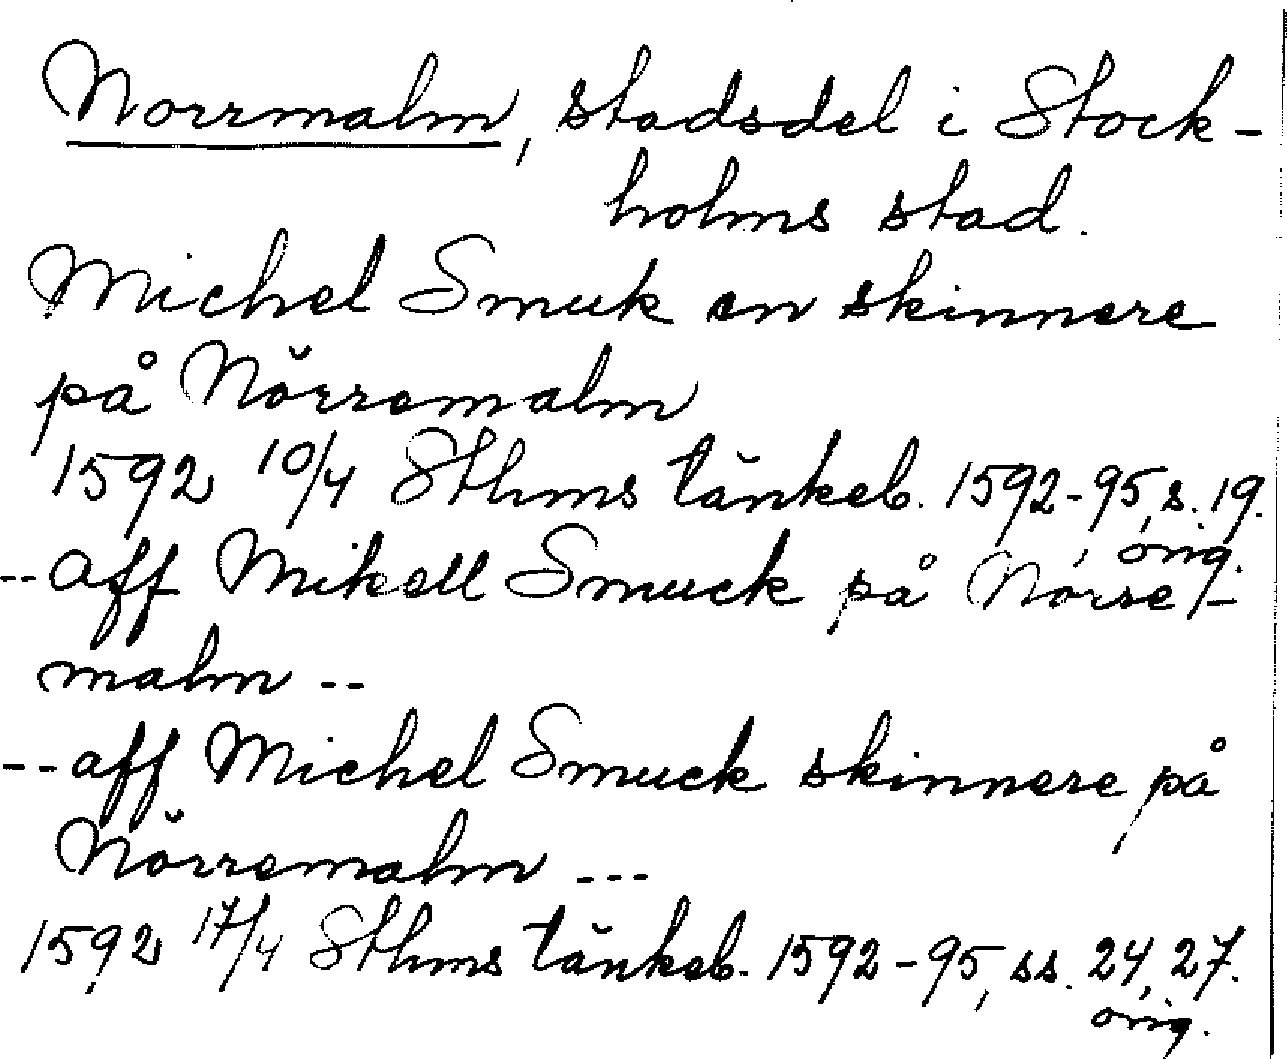 Norrmalm, stadsdel i Stock-
holms stad.
Michel Smuk en skinnere
på Nörremalm
1592 10/4 Sthms tänkeb. 1592-95, s. 19.
orig.
-- aff Mikell Smuck på Nörre/-
malm --
-- aff Michel Smuck skinnere på
Nörremalm ---
1592 17/4 Sthms tänkeb. 1592-95, ss. 24, 27.
orig.